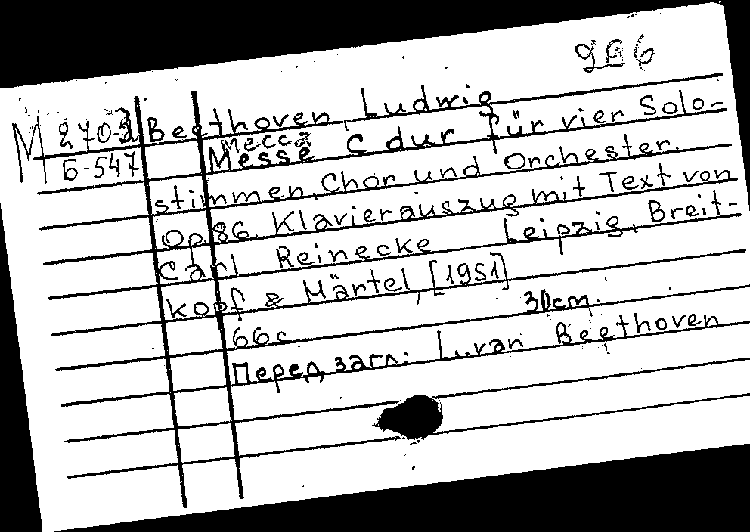 966
М 270-2 Beethoven, Ludwig
Б-547 Месса
Messe C dur für vier Solo-
stimmen, Chor und Orchester.
Op. 86. Klavierauszug mit Text von
Carl Reinecke Leipzig, Breit-
kopf & Härtel, [1951]
66 с 30cm.
Перед загл.: L. van Beethoven